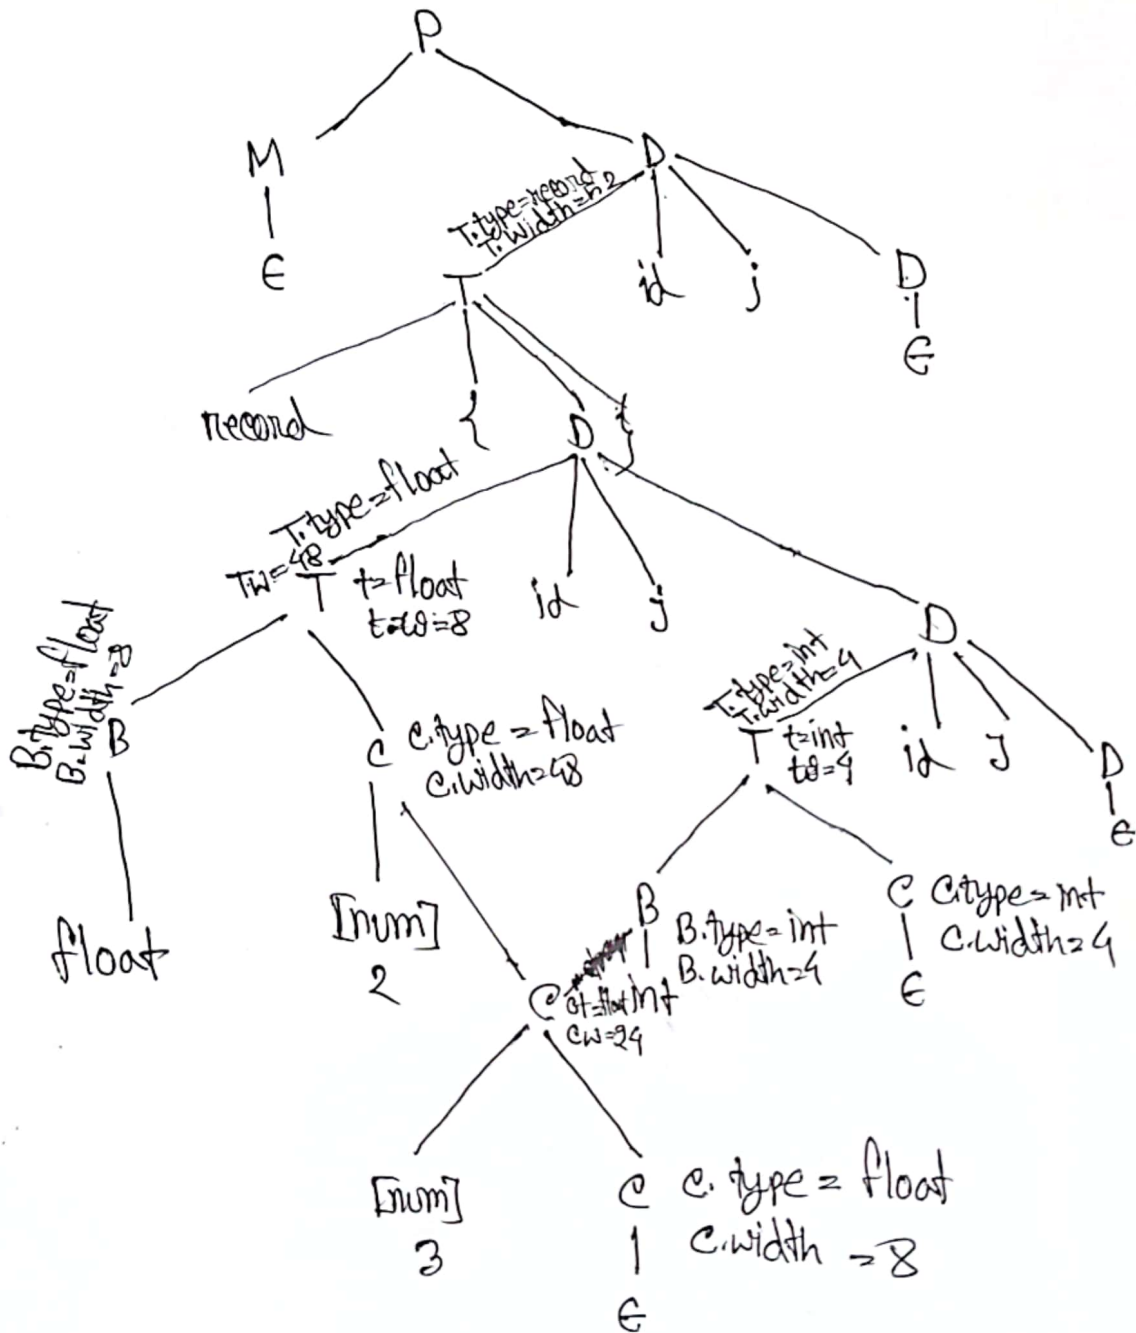 P
M
D
T.type=record
T.width=52
Є
T
id
;
D
Є
record
{
D
}
T.type=float
T.W=48
T
t=float
t.w=8
id
;
D
B.type=float
B.width=8
B
C
C.type=float
C.width=48
T.type=int
T.width=4
T
t=int
tw=4
id
;
D
Є
float
[num]
2
B
B.type=int
B.width=4
int
C
C.type=int
C.width=4
Є
C
Ct=float
CW=24
[num]
3
C
C.type=float
C.width=8
Є